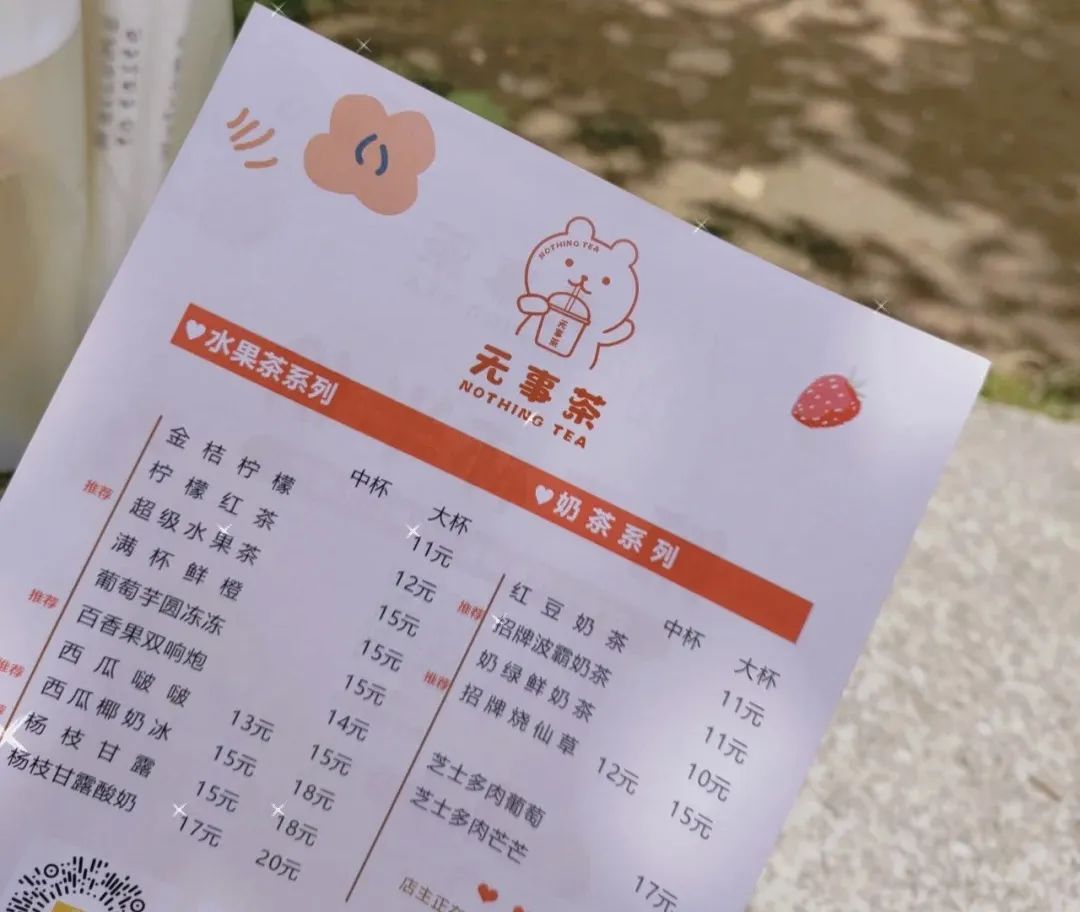 NOTHING TEA
无事茶
无事茶
NOTHING TEA
水果茶系列
中杯 大杯
金桔柠檬 11元
柠檬红茶 12元
推荐 超级水果茶 15元
满杯鲜橙 15元
葡萄芋圆冻冻 15元
推荐 百香果双响炮 14元
西瓜啵啵 13元 15元
推荐 西瓜椰奶冰 15元 18元
杨枝甘露 15元 18元
杨枝甘露酸奶 17元 20元
奶茶系列
中杯 大杯
红豆奶茶 11元
推荐 招牌波霸奶茶 11元
奶绿鲜奶茶 10元
推荐 招牌烧仙草 12元 15元
芝士多肉葡萄 17元
芝士多肉芒芒
店主正在